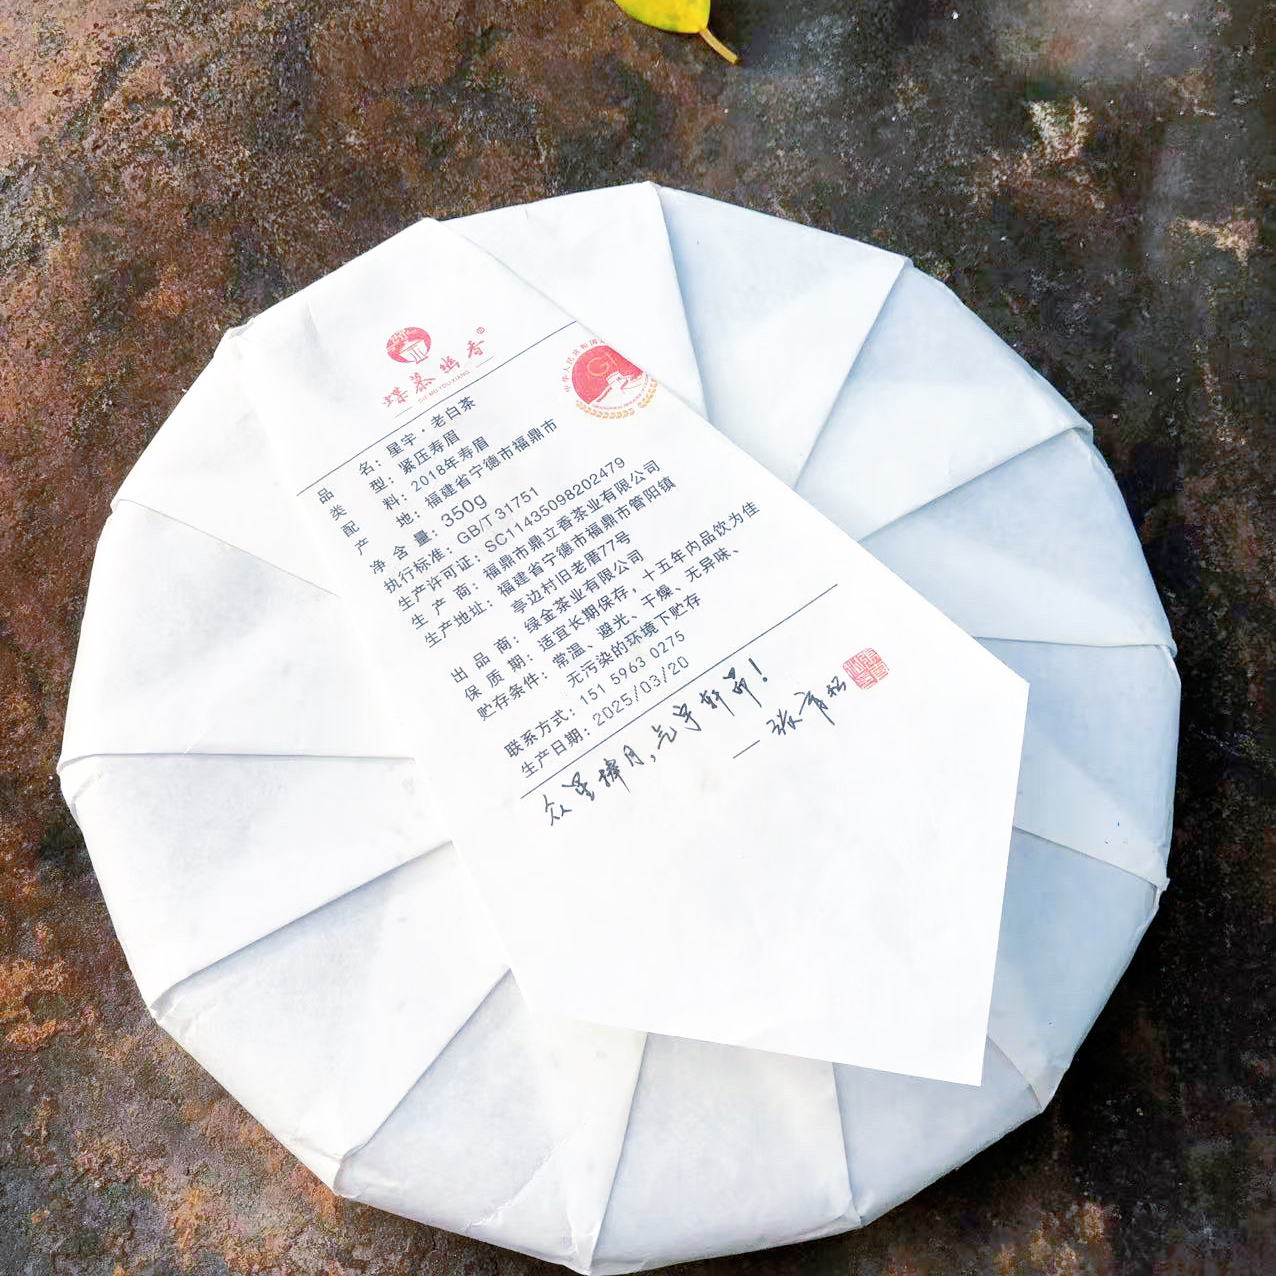 蝶慕悠香®
DIE MU YOU XIANG
GI
品 名：星宇·老白茶
类 型：紧压寿眉
配 料：2018年寿眉
产 地：福建省宁德市福鼎市
净 含 量：350g
执行标准：GB/T 31751
生产许可证：SC11435098202479
生 产 商：福鼎市鼎立香茶业有限公司
生产地址：福建省宁德市福鼎市管阳镇
亨边村旧老厝77号
出 品 商：绿金茶业有限公司
保 质 期：适宜长期保存，十五年内品饮为佳
贮存条件：常温、避光、干燥、无异味、
无污染的环境下贮存
联系方式：151 5963 0275
生产日期：2025/03/20
众星捧月，气宇轩昂！